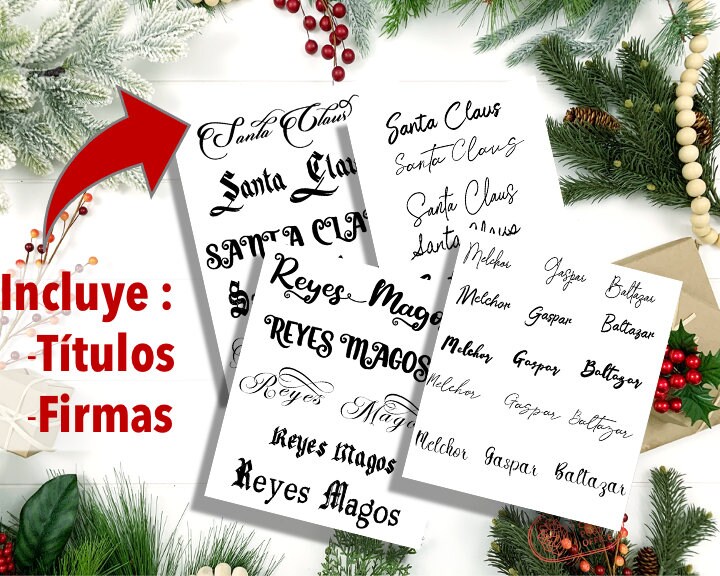 Santa Claus
Santa Clau
SANTA CLA
S
Santa Claus
Santa Claus
Santa Claus
Santa Maus
Incluye :
-Títulos
-Firmas
Reyes Mago
REYES MAGOS
Reyes Mago
Reyes Magos
Reyes Magos
Melchor Gaspar Baltazar
Melchor Gaspar Baltazar
Melchor Gaspar Baltazar
Melchor Gaspar Baltazar
Melchor Gaspar Baltazar